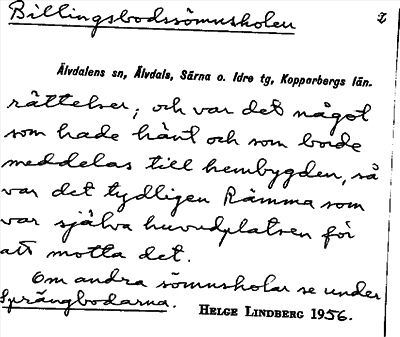 Billingsbodssömnsholen 2
Älvdalens sn, Älvdals, Särna o. Idre tg, Kopparbergs län.
rättelser; och var det något
som hade hänt och som borde
meddelas till hembygden, så
var det tydligen Rämma som
var själva huvudplatsen för
att motta det.
Om andra sömnsholar se under
Sprängbodarna. HELGE LINDBERG 1956.